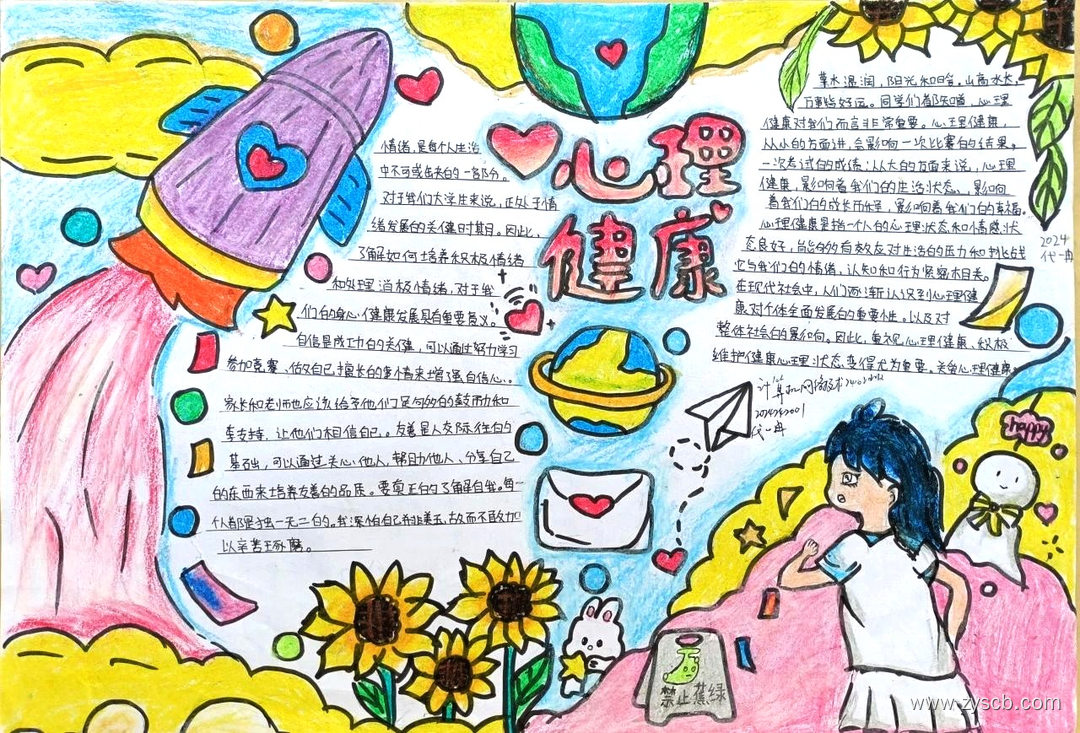 心理
健康
情绪,是每个人生活
中不可或缺的一部分。
对于我们大学生来说,正处于情
绪发展的关健时期。因此,
了解如何培养积极情绪
和处理消极情绪,对于我
们的身心健康发展具有重要意义。
自信是成功的关健,可以通过努力学习
参加竞赛,做自己擅长的事情来增强自信心。
家长和老师也应该给予他们足够的鼓励和
支持,让他们相信自己。友善是人交际往的
基础,可以通过关心他人,帮助他人、分享自己
的东西来培养友善的品质。要真正的了解自我。每一
个都是独一无二的。我深怕自己非美玉,故而不敢加
以辛苦琢磨。
草木温润,阳光和煦。山高水长,
万事皆好远。同学们都知道,心理
健康对我们而言非常重要。心理健康,
从小的方面讲,会影响一次比赛的结果。
一次考试的成绩:从大的方面来说,心理
健康,影响着我们的生活状态、影响
着我们的成长历程,影响着我们的幸福。
心理健康是指一个人的心理状态和情感状
态良好,能够有效应对生活的压力和挑战
它与我们的情绪,认知和行为紧密相关。
在现代社会中,人们逐渐认识到心理健
康对个体全面发展的重要性。以及对
整体社会的影响。因此,重视心理健康、积极
维护健康心理状态,变得尤为重要。关爱心理健康。
2024
代一冉
计算机网络技术
代一冉
happy
禁止蕉绿
www.zyscb.com